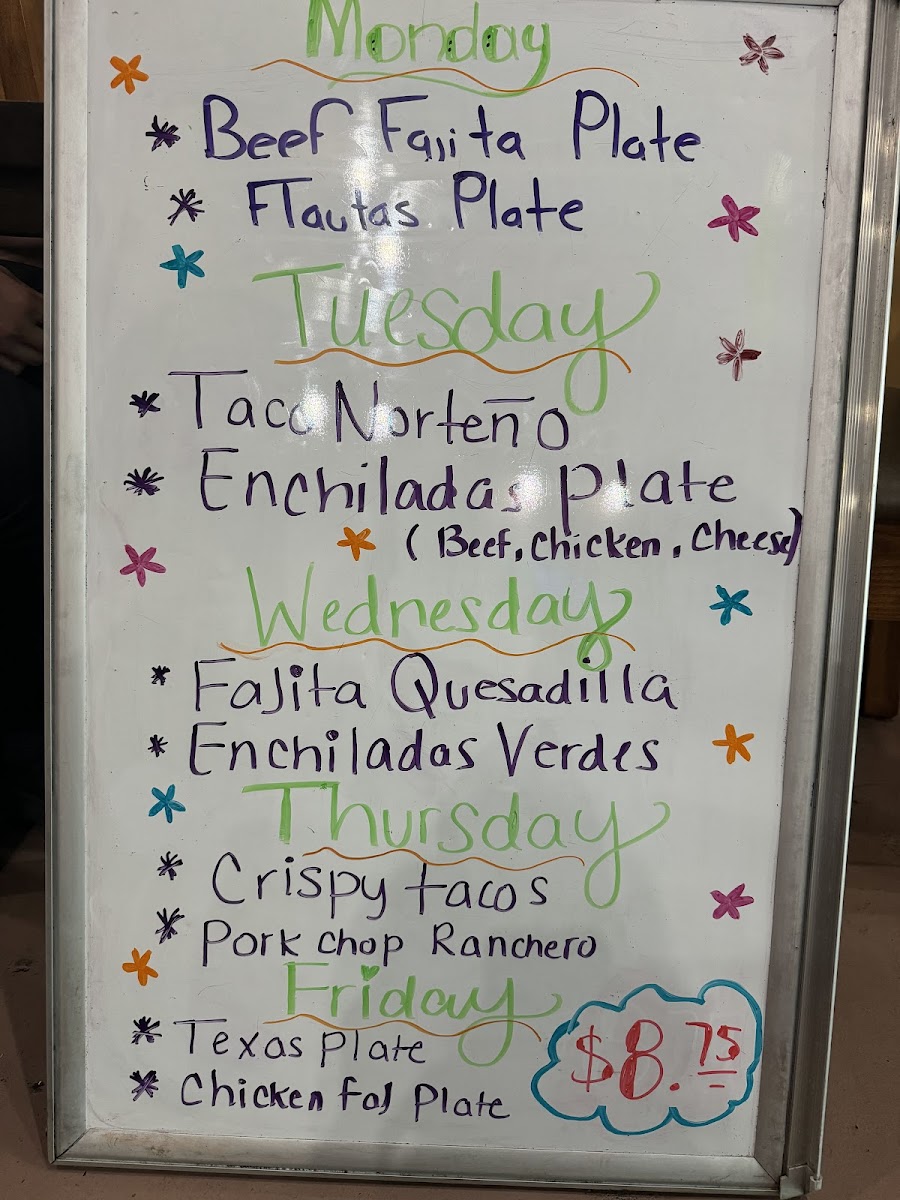 Monday
* Beef Fajita Plate
* Flautas Plate
Tuesday
* Taco Norteño
* Enchiladas Plate
(Beef, Chicken, Cheese)
Wednesday
* Fajita Quesadilla
* Enchiladas Verdes
Thursday
* Crispy tacos
* Pork chop Ranchero
Friday
* Texas Plate
* Chicken Faj Plate
$8.75